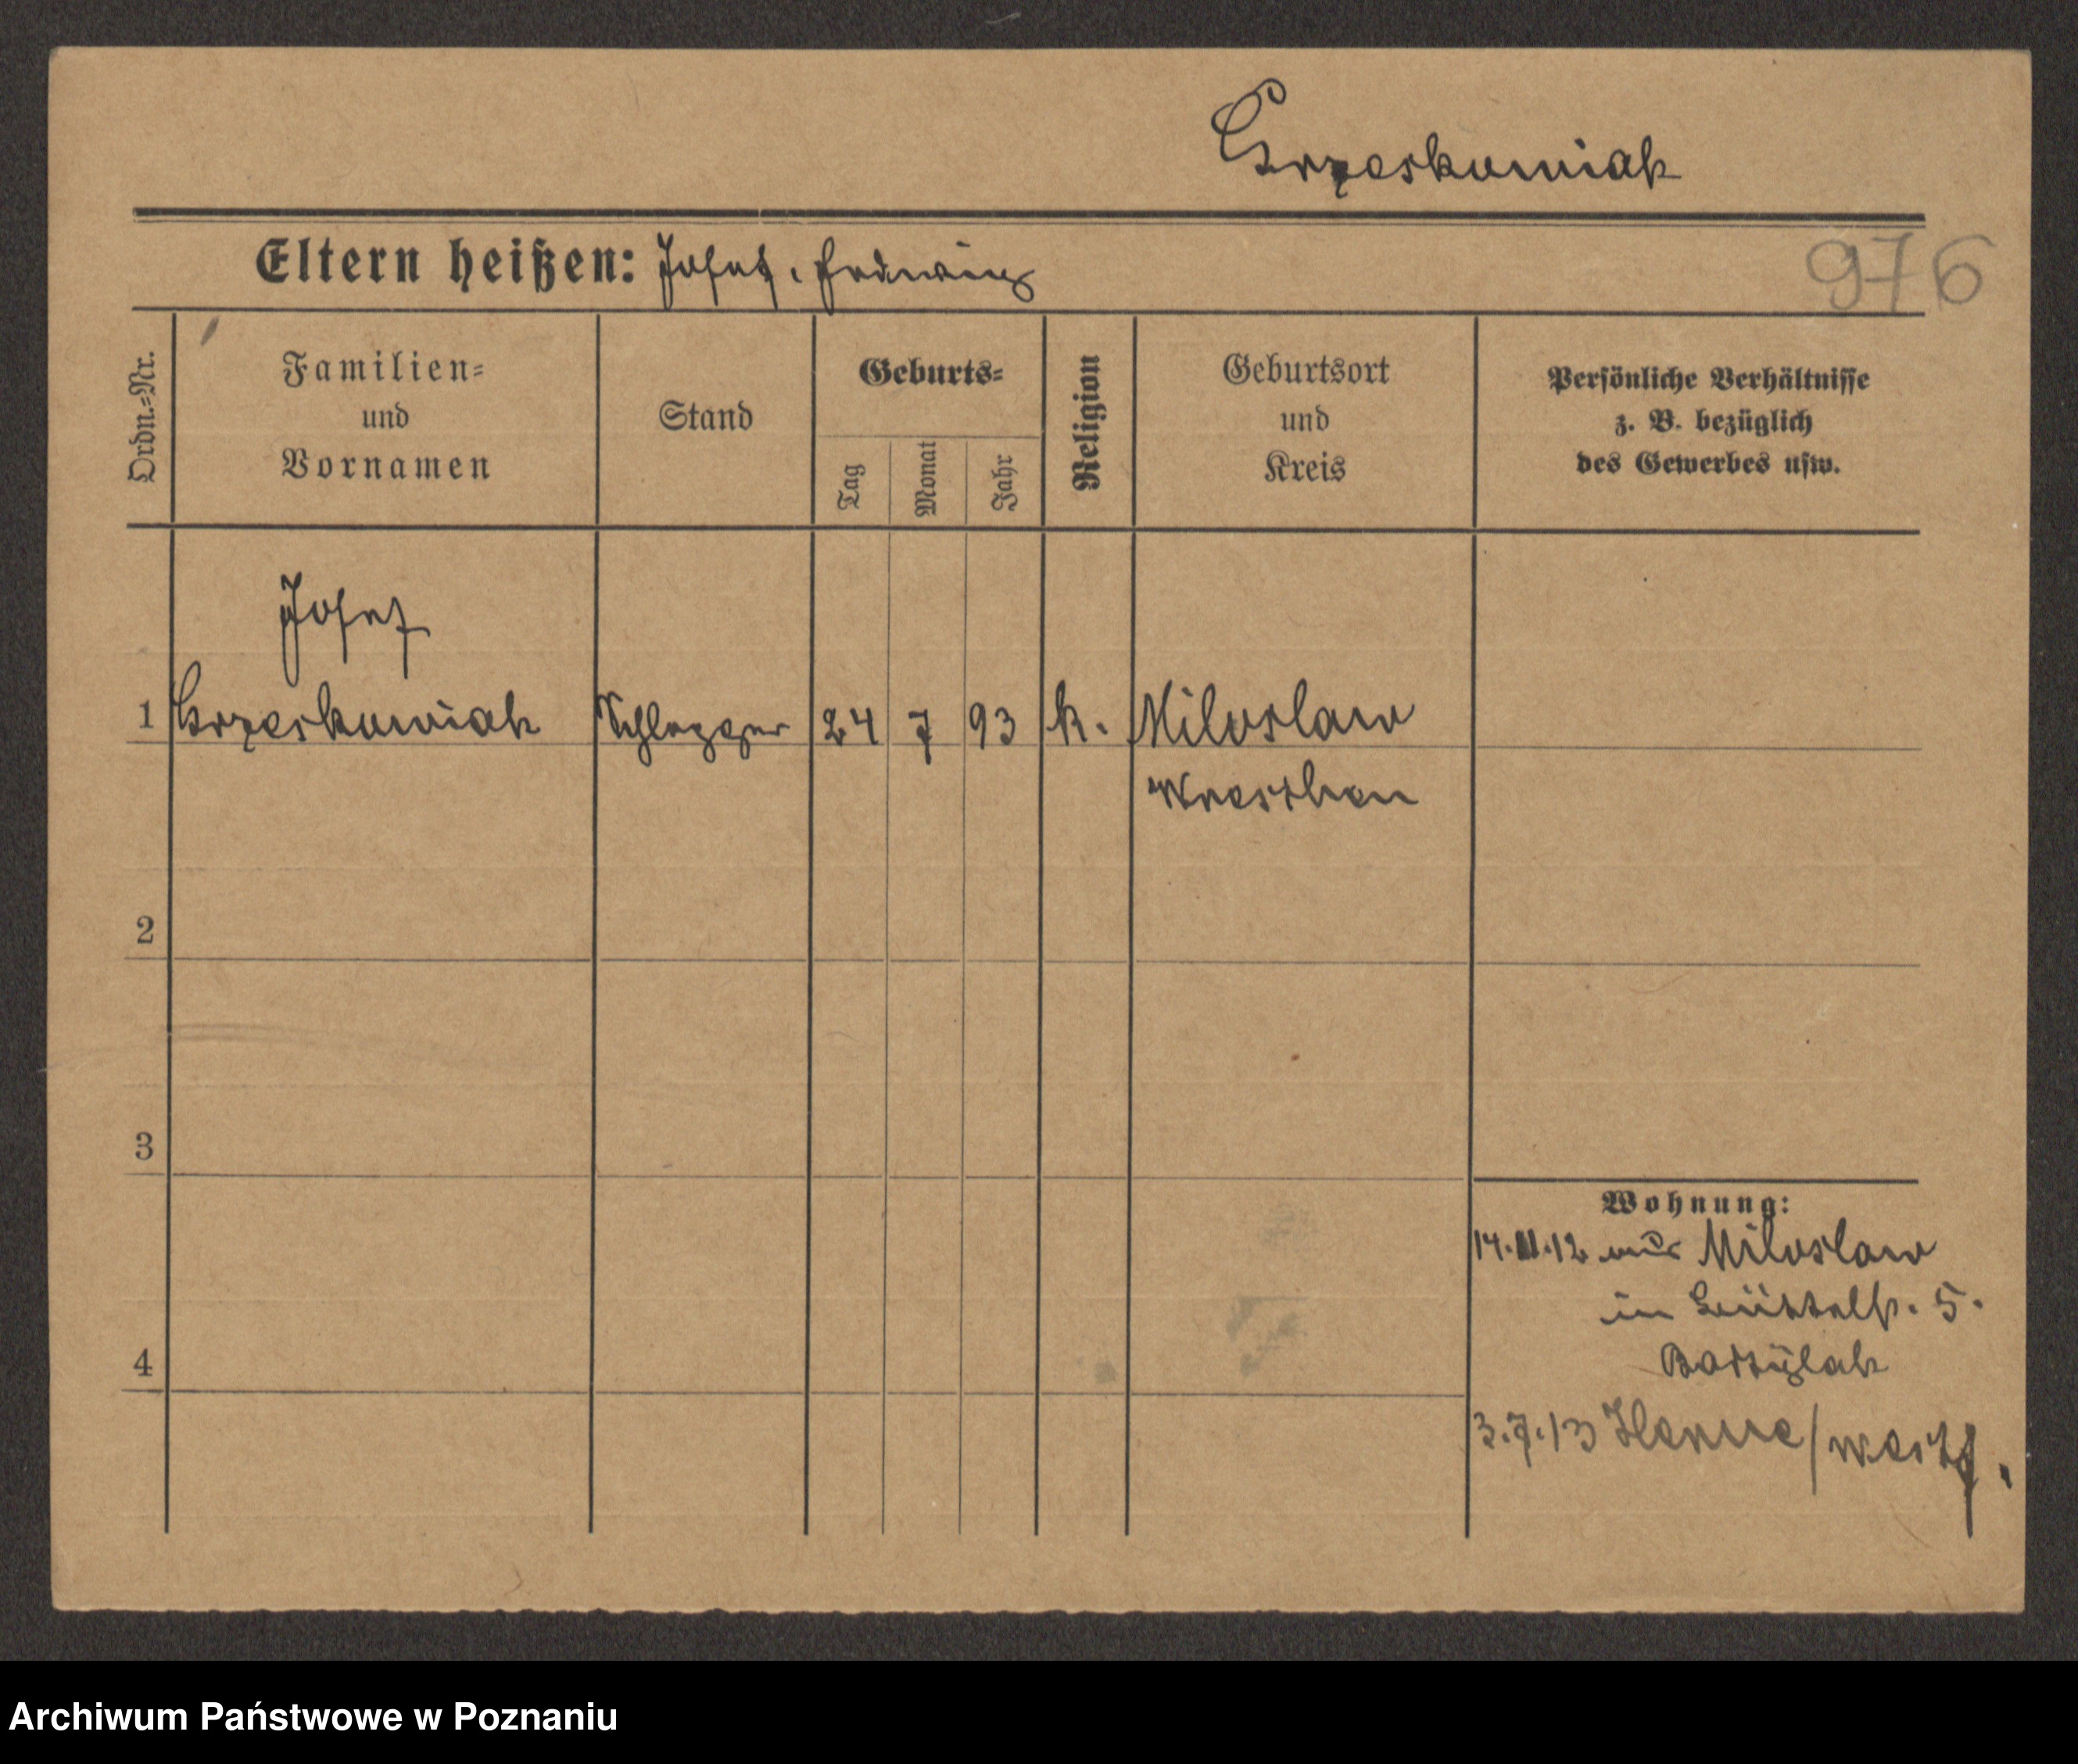 Grzeskowiak
Eltern heißen: Josef, Hedwig
976
Ordn.=Nr.
Familien=
und
Vornamen
Stand
Geburts=
Tag
Monat
Jahr
Religion
Geburtsort
und
Kreis
Persönliche Verhältnisse
z. B. bezüglich
des Gewerbes usw.
Josef
1 Grzeskowiak 24 7 93 k. Miloslaw
Wreschen
2
3
4
Wohnung:
14.11.12 aus Miloslaw
in 5.
3.7.13 Herne/Westf.
Archiwum Państwowe w Poznaniu